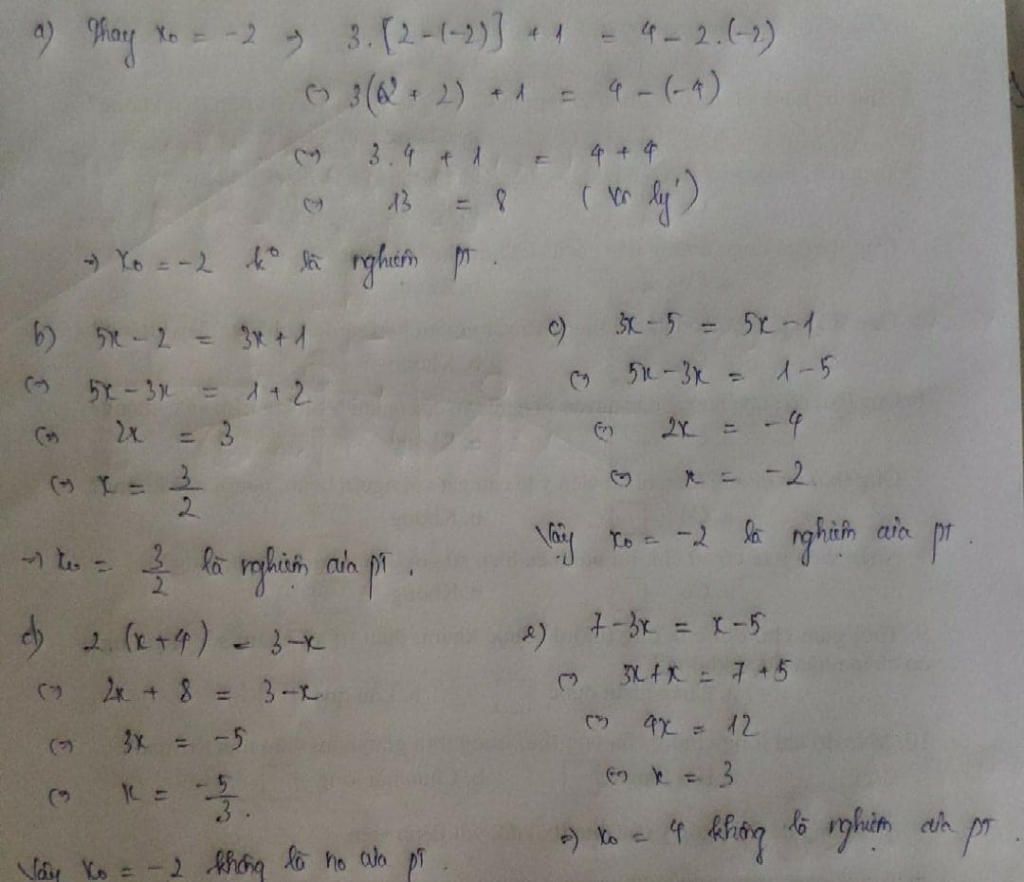 a) Thay x₀ = -2 → 3.[2-(-2)] + 1 = 4 - 2.(-2)
⇔ 3(2 + 2) + 1 = 4 - (-4)
⇔ 3.4 + 1 = 4 + 4
⇔ 13 = 8 (vô lý)
→ x₀ = -2 k° là nghiệm pt.
b) 5x - 2 = 3x + 1
⇔ 5x - 3x = 1 + 2
⇔ 2x = 3
⇔ x = 3/2
→ x₀ = 3/2 là nghiệm của pt.
c) 3x - 5 = 5x - 1
⇔ 5x - 3x = 1 - 5
⇔ 2x = -4
⇔ x = -2
Vậy x₀ = -2 là nghiệm của pt.
d) 2.(x+4) = 3-x
⇔ 2x + 8 = 3-x
⇔ 3x = -5
⇔ x = -5/3.
Vậy x₀ = -2 không là no của pt
e) 7-3x = x-5
⇔ 3x+x = 7+5
⇔ 4x = 12
⇔ x = 3
⇒ x₀ = 4 không là nghiệm của pt